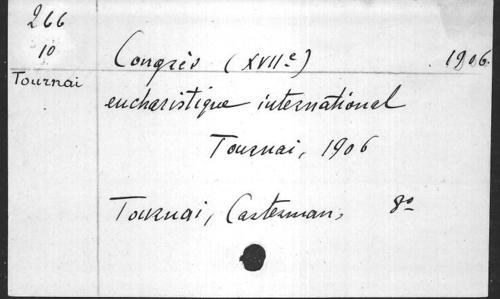 266
10
Tournai
Congrès (XVIIe) 1906.
eucharistique international
Tournai, 1906
Tournai, Casterman, 8o